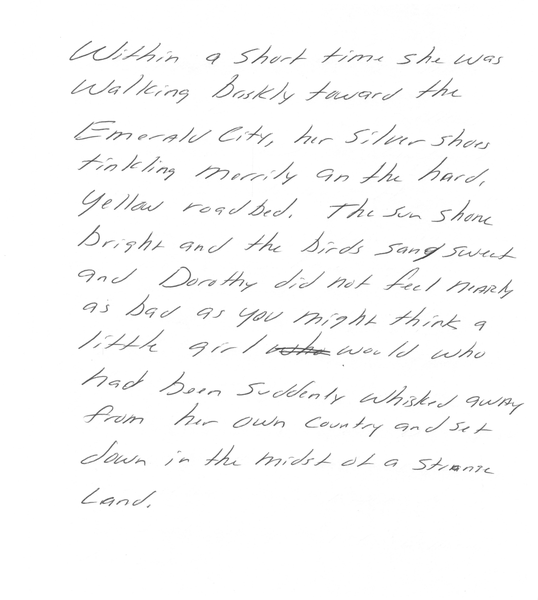 Within a short time she was
Walking briskly toward the
Emerald City, her Silver shoes
tinkling merrily on the hard,
Yellow roadbed. The sun shone
bright and the birds sang sweet
and Dorothy did not feel nearly
as bad as you might think a
little girl who would who
had been suddenly whisked away
from her own country and set
down in the midst of a strange
Land.